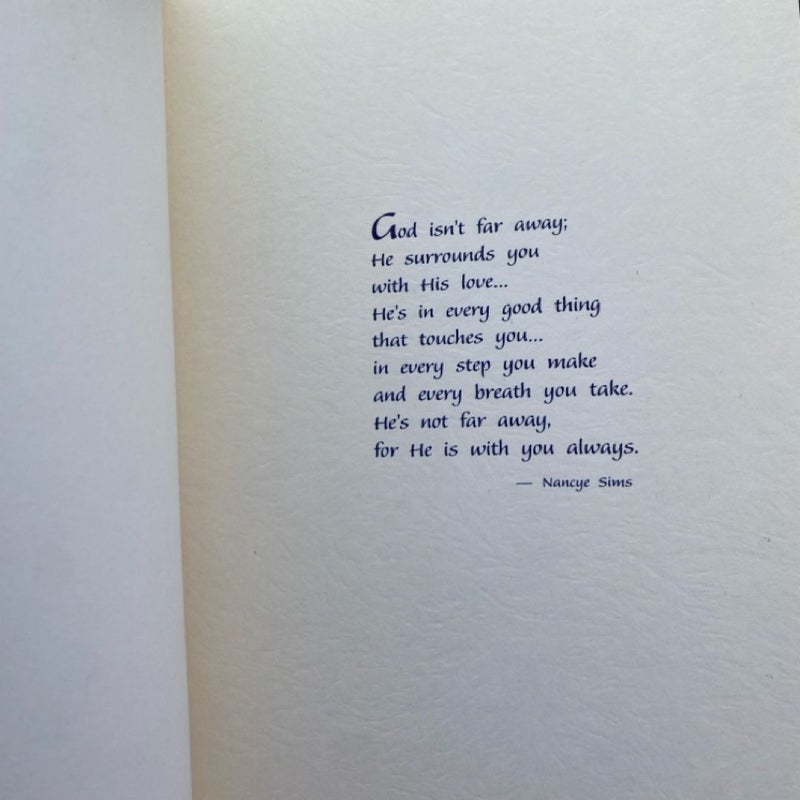 God isn't far away;
He surrounds you
with His love...
He's in every good thing
that touches you...
in every step you make
and every breath you take.
He's not far away,
for He is with you always.
— Nancye Sims